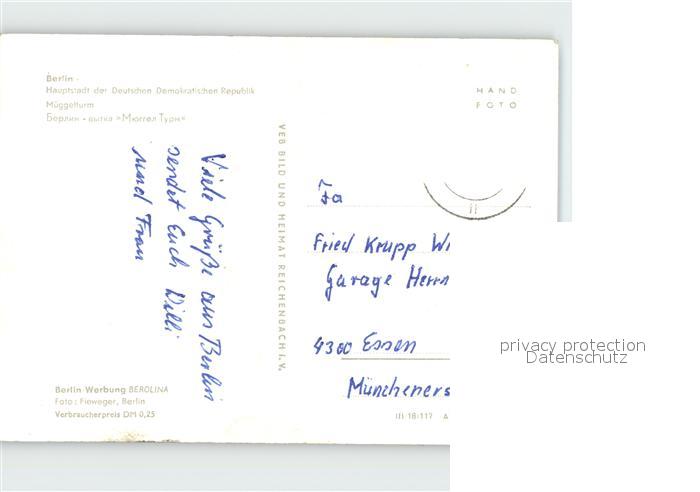 Berlin -
Hauptstadt der Deutschen Demokratischen Republik
Müggelturm
Берлин - вытка »Мюггел Турм«
HAND
FOTO
VEB BILD UND HEIMAT REICHENBACH I. V.
Viele Grüße aus Berlin
sendet Euch Willi
und Frau
Fa
Fried Krupp
Garage
4300 Essen
Müncheners
Berlin-Werbung BEROLINA
Foto: Fieweger, Berlin
Verbraucherpreis DM 0,25
III 18/117 A
privacy protection
Datenschutz